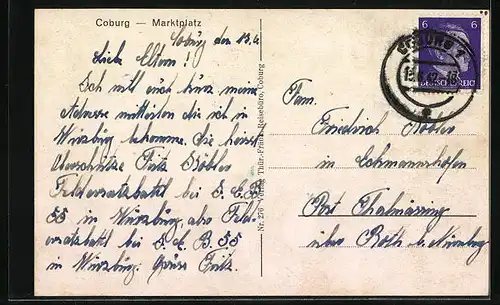 Coburg — Marktplatz
Coburg den 13.6
Liebe Eltern!
Ich will euch kurz meine
Adresse mitteilen die ich in
Würzburg bekomme. Sie heisst
Fritz Köhler
Feldersatzbattl bei
55 in Würzburg also Feld-
ersatzbattl bei B. 55
in Würzburg. Grüsse Fritz.
Nr. 270 Verlag Thür.-Fränk. Reisebüro, Coburg
6 6
DEUTSCHES REICH
COBURG
Fam.
Friedrich Köhler
in Lohmannshofen
Post Thalmässing
über Roth b. Nürnberg